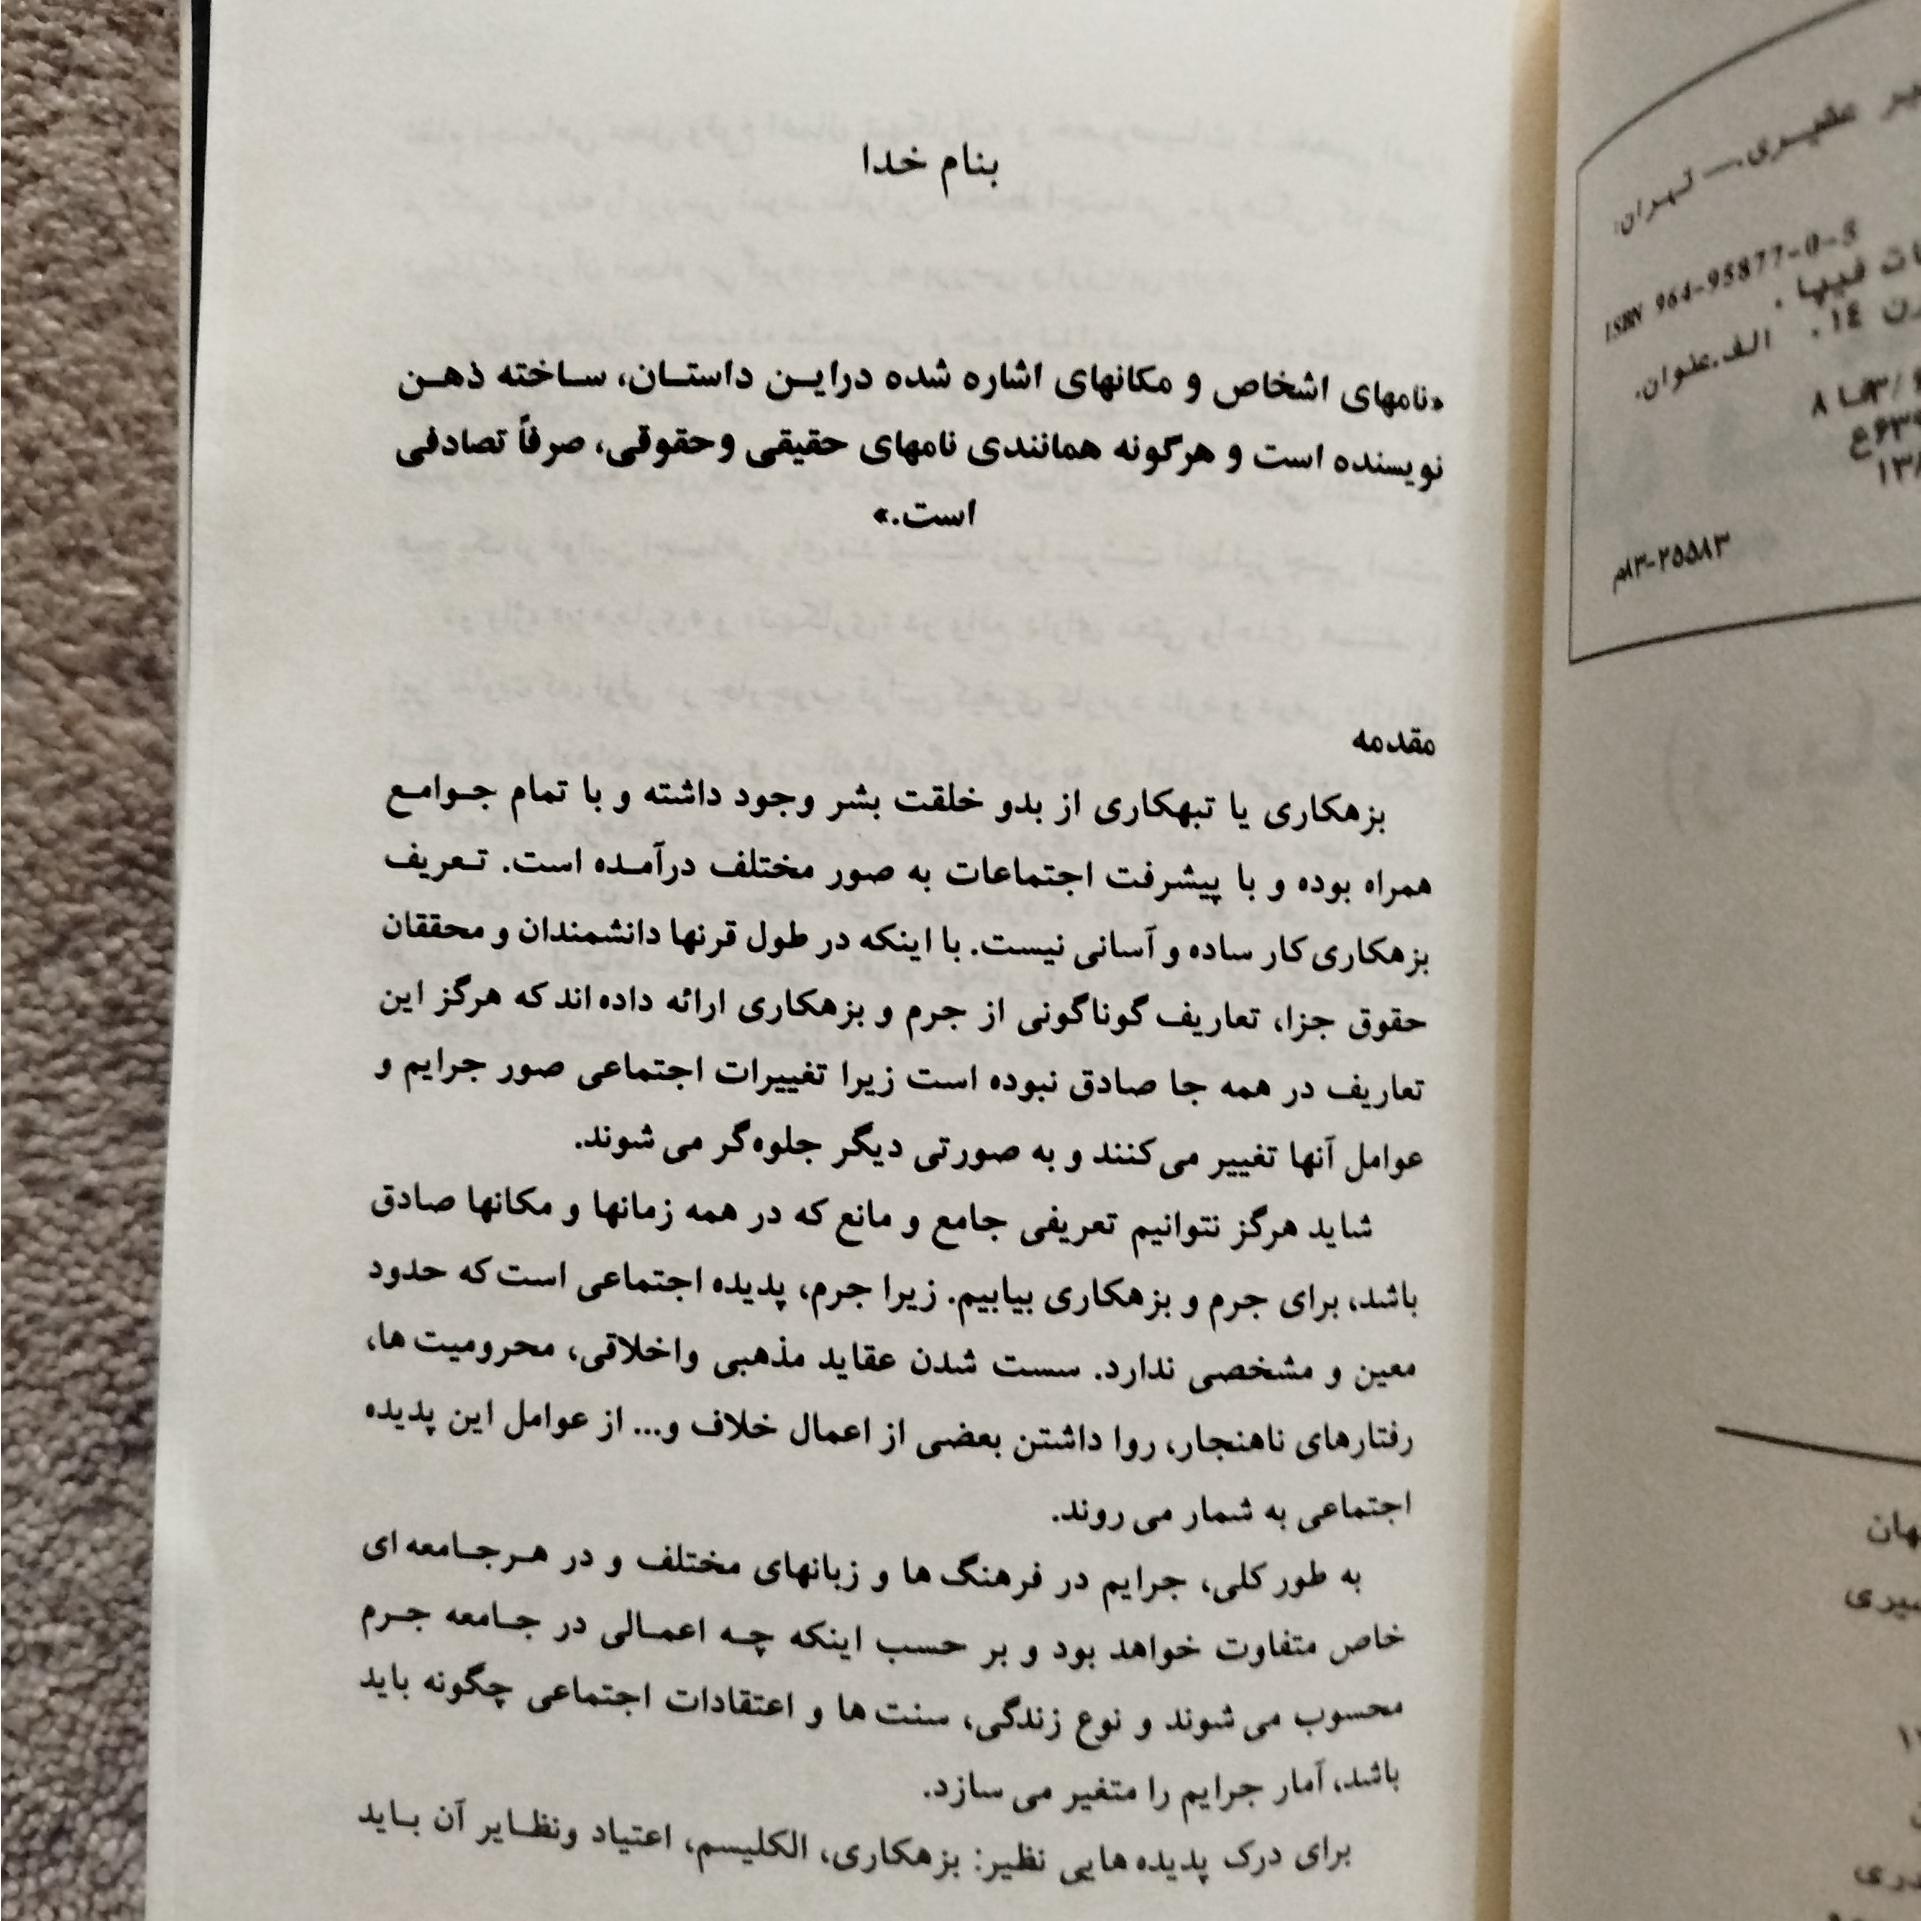 بنام خدا
«نامهای اشخاص و مکانهای اشاره شده دراین داستان، ساخته ذهن
نویسنده است و هرگونه همانندی نامهای حقیقی وحقوقی، صرفاً تصادفی
است.»
مقدمه
بزهکاری یا تبهکاری از بدو خلقت بشر وجود داشته و با تمام جوامع
همراه بوده و با پیشرفت اجتماعات به صور مختلف درآمده است. تعریف
بزهکاری کار ساده و آسانی نیست. با اینکه در طول قرنها دانشمندان و محققان
حقوق جزا، تعاریف گوناگونی از جرم و بزهکاری ارائه داده اند که هرگز این
تعاریف در همه جا صادق نبوده است زیرا تغییرات اجتماعی صور جرایم و
عوامل آنها تغییر می کنند و به صورتی دیگر جلوه گر می شوند.
شاید هرگز نتوانیم تعریفی جامع و مانع که در همه زمانها و مکانها صادق
باشد، برای جرم و بزهکاری بیابیم. زیرا جرم، پدیده اجتماعی است که حدود
معین و مشخصی ندارد. سست شدن عقاید مذهبی واخلاقی، محرومیت ها،
رفتارهای ناهنجار، روا داشتن بعضی از اعمال خلاف و... از عوامل این پدیده
اجتماعی به شمار می روند.
به طور کلی، جرایم در فرهنگ ها و زبانهای مختلف و در هرجامعه ای
خاص متفاوت خواهد بود و بر حسب اینکه چه اعمالی در جامعه جرم
محسوب می شوند و نوع زندگی، سنت ها و اعتقادات اجتماعی چگونه باید
باشد، آمار جرایم را متغیر می سازد.
برای درک پدیده هایی نظیر: بزهکاری، الکلیسم، اعتیاد ونظایر آن باید
تهران:
ISBN 964-95877-0-5
فیپا.
۱۴. الف.عنوان.
۸۳-۲۵۵۸۳م